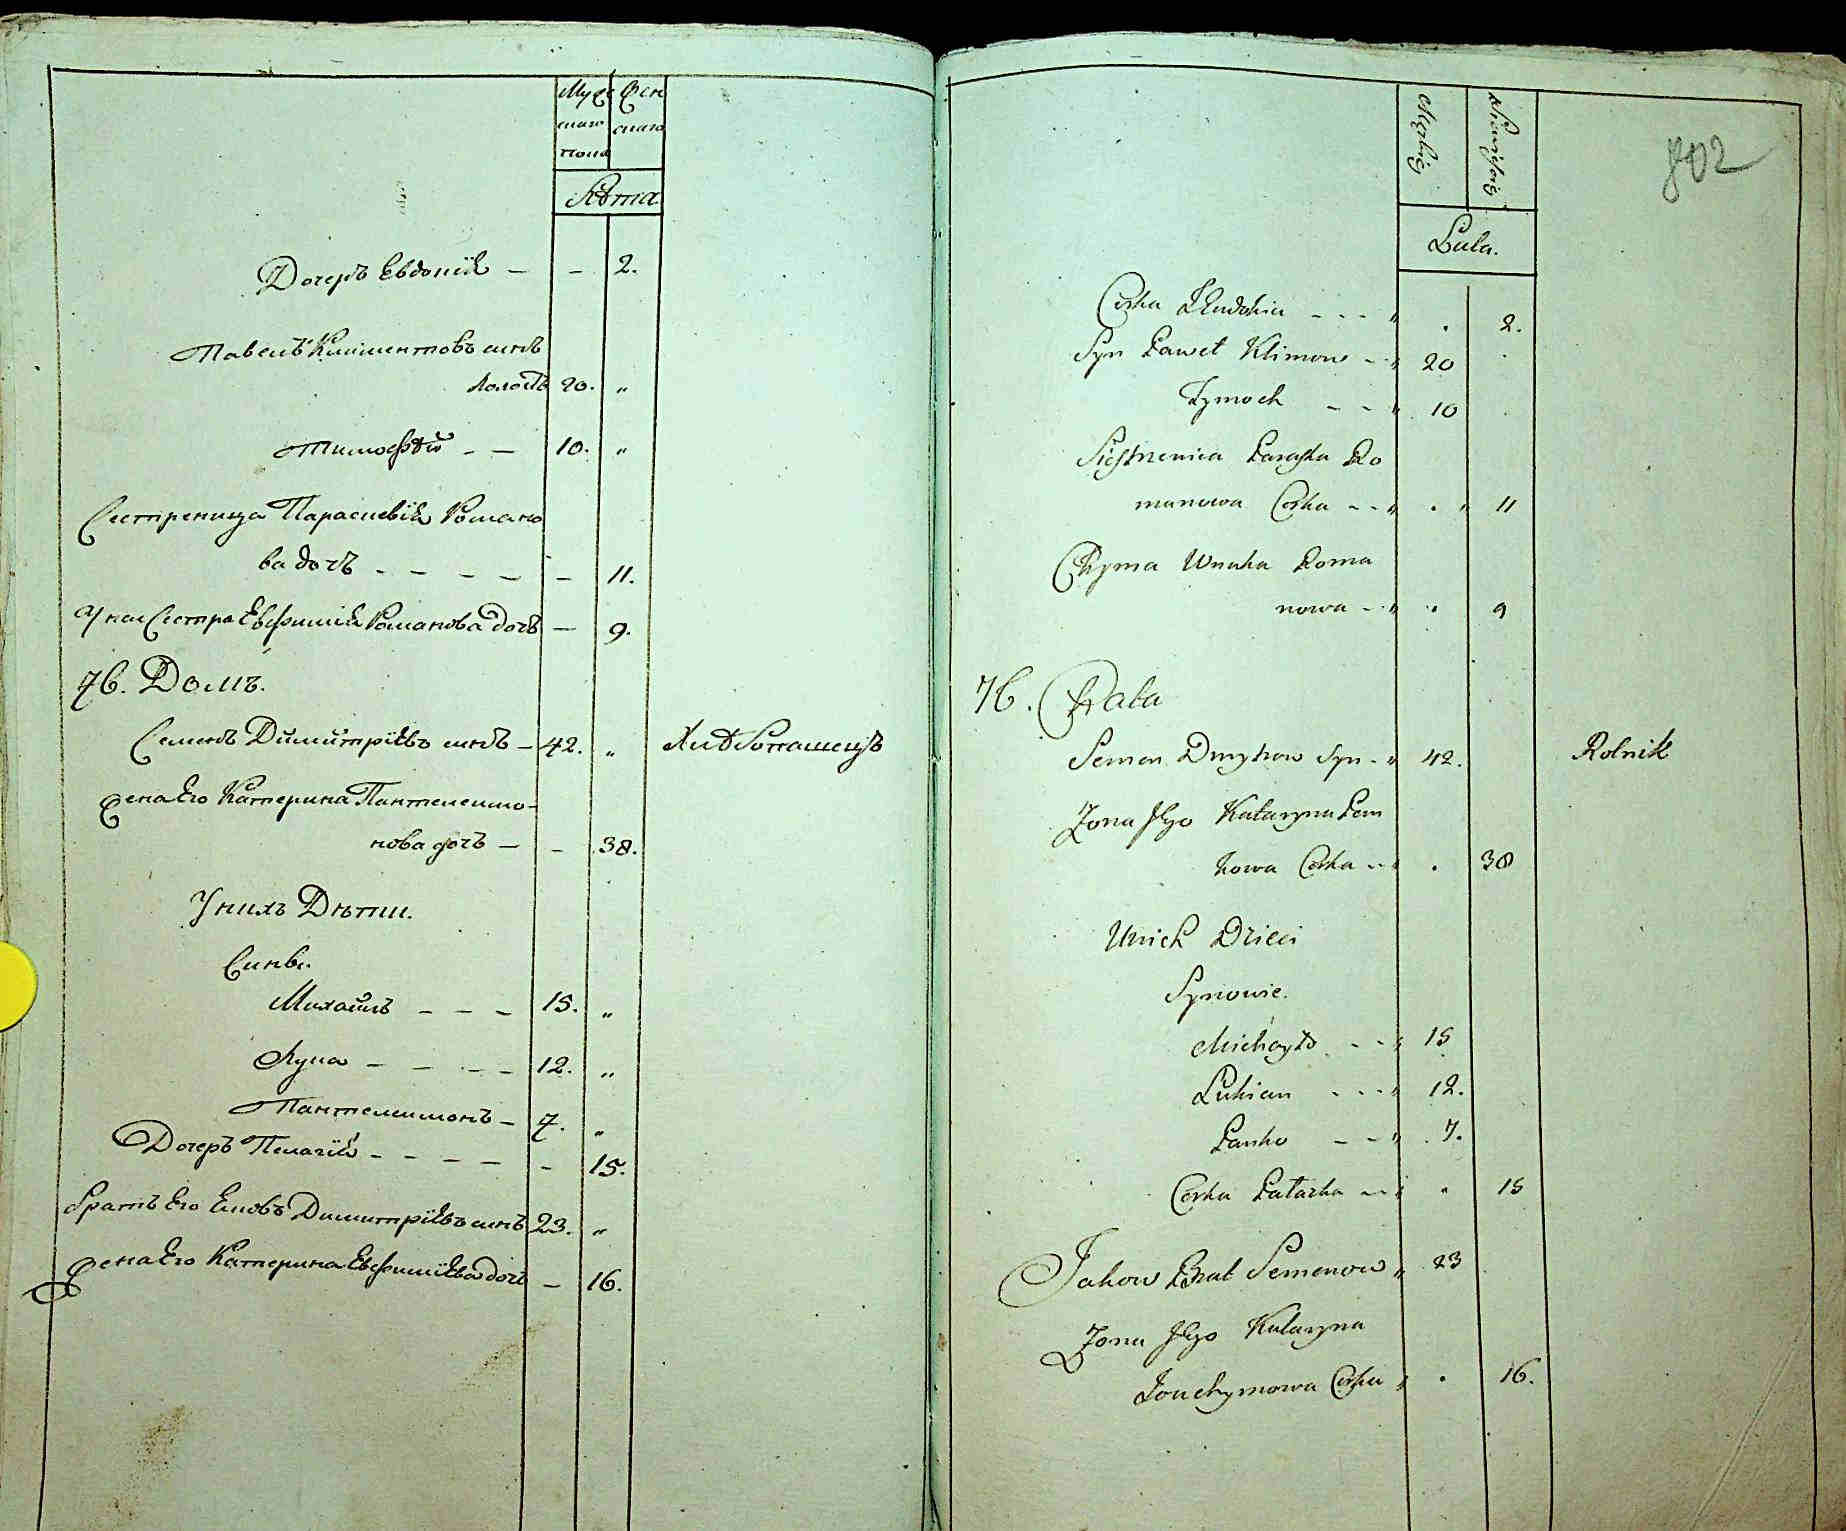 Муже Жен
скаго скаго
пола
Лѣта
Дочеръ Евдокія — — 2.
Павелъ Климентовъ синъ
холостъ 20. „
Тимофѣй — — 10. „
Сестреница Параскевія Романо
ва дочъ — — — — — 11.
Сестра Евфимія Романова дочъ — 9.
76. Домъ.
Семенъ Димитріевъ синъ — 42. „ Хлѣбопашецъ
Жена Его Катерина Пантелеимо-
нова дочъ — — 38.
У нихъ Дѣти.
Сини.
Михаилъ — — — 15. „
Лука — — — — 12. „
Пантелимонъ — 7. „
Дочеръ Пелагія — — — — — 15.
Братъ Его Яковъ Димитріевъ синъ 23. „
Жена Его Катерина Евфиміева дочъ — 16.
802
Męskiej Niewieściej
Lata.
Corka Jewdokia - - - „ . 2.
Syn Paweł Klimow - „ 20 .
Tymoch - - „ 10 .
Siestrzenica Paraska Ro
manowa Corka - - „ . „ 11
Chyma Wnuka Roma
nowa - „ . 9
76. Chata
Semen Dmytrow Syn - „ 42. Rolnik
Żona Jego Katarzyna Pan
kowa Corka - - „ . 38
U nich Dzieci
Synowie.
Michayło - - „ 15
Lukian - - - „ 12.
Panko - - „ 7.
Corka Palazka - - „ „ 15
Jakow Brat Semenow „ 23
Żona Jego Katarzyna
Jouchymowa Corka „ . 16.